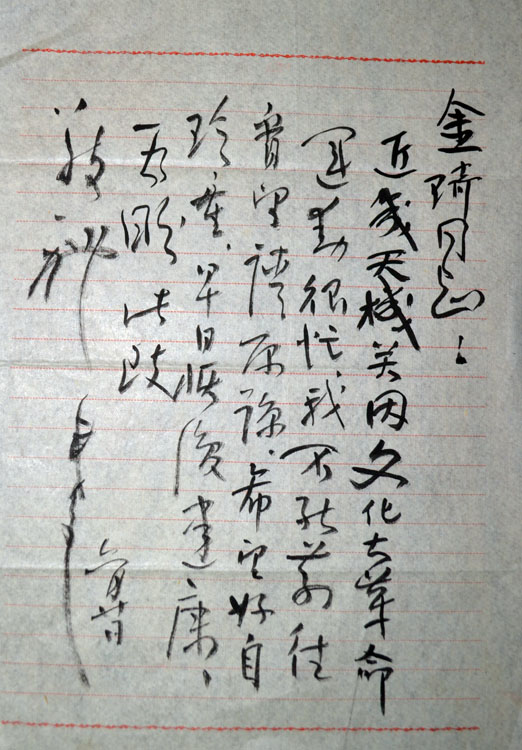 金琦同志：
近几天机关因文化大革命
运动很忙，我不能前往
看望，请原谅，希望好自
珍重，早日恢复健康，
此致
敬礼
六月廿日